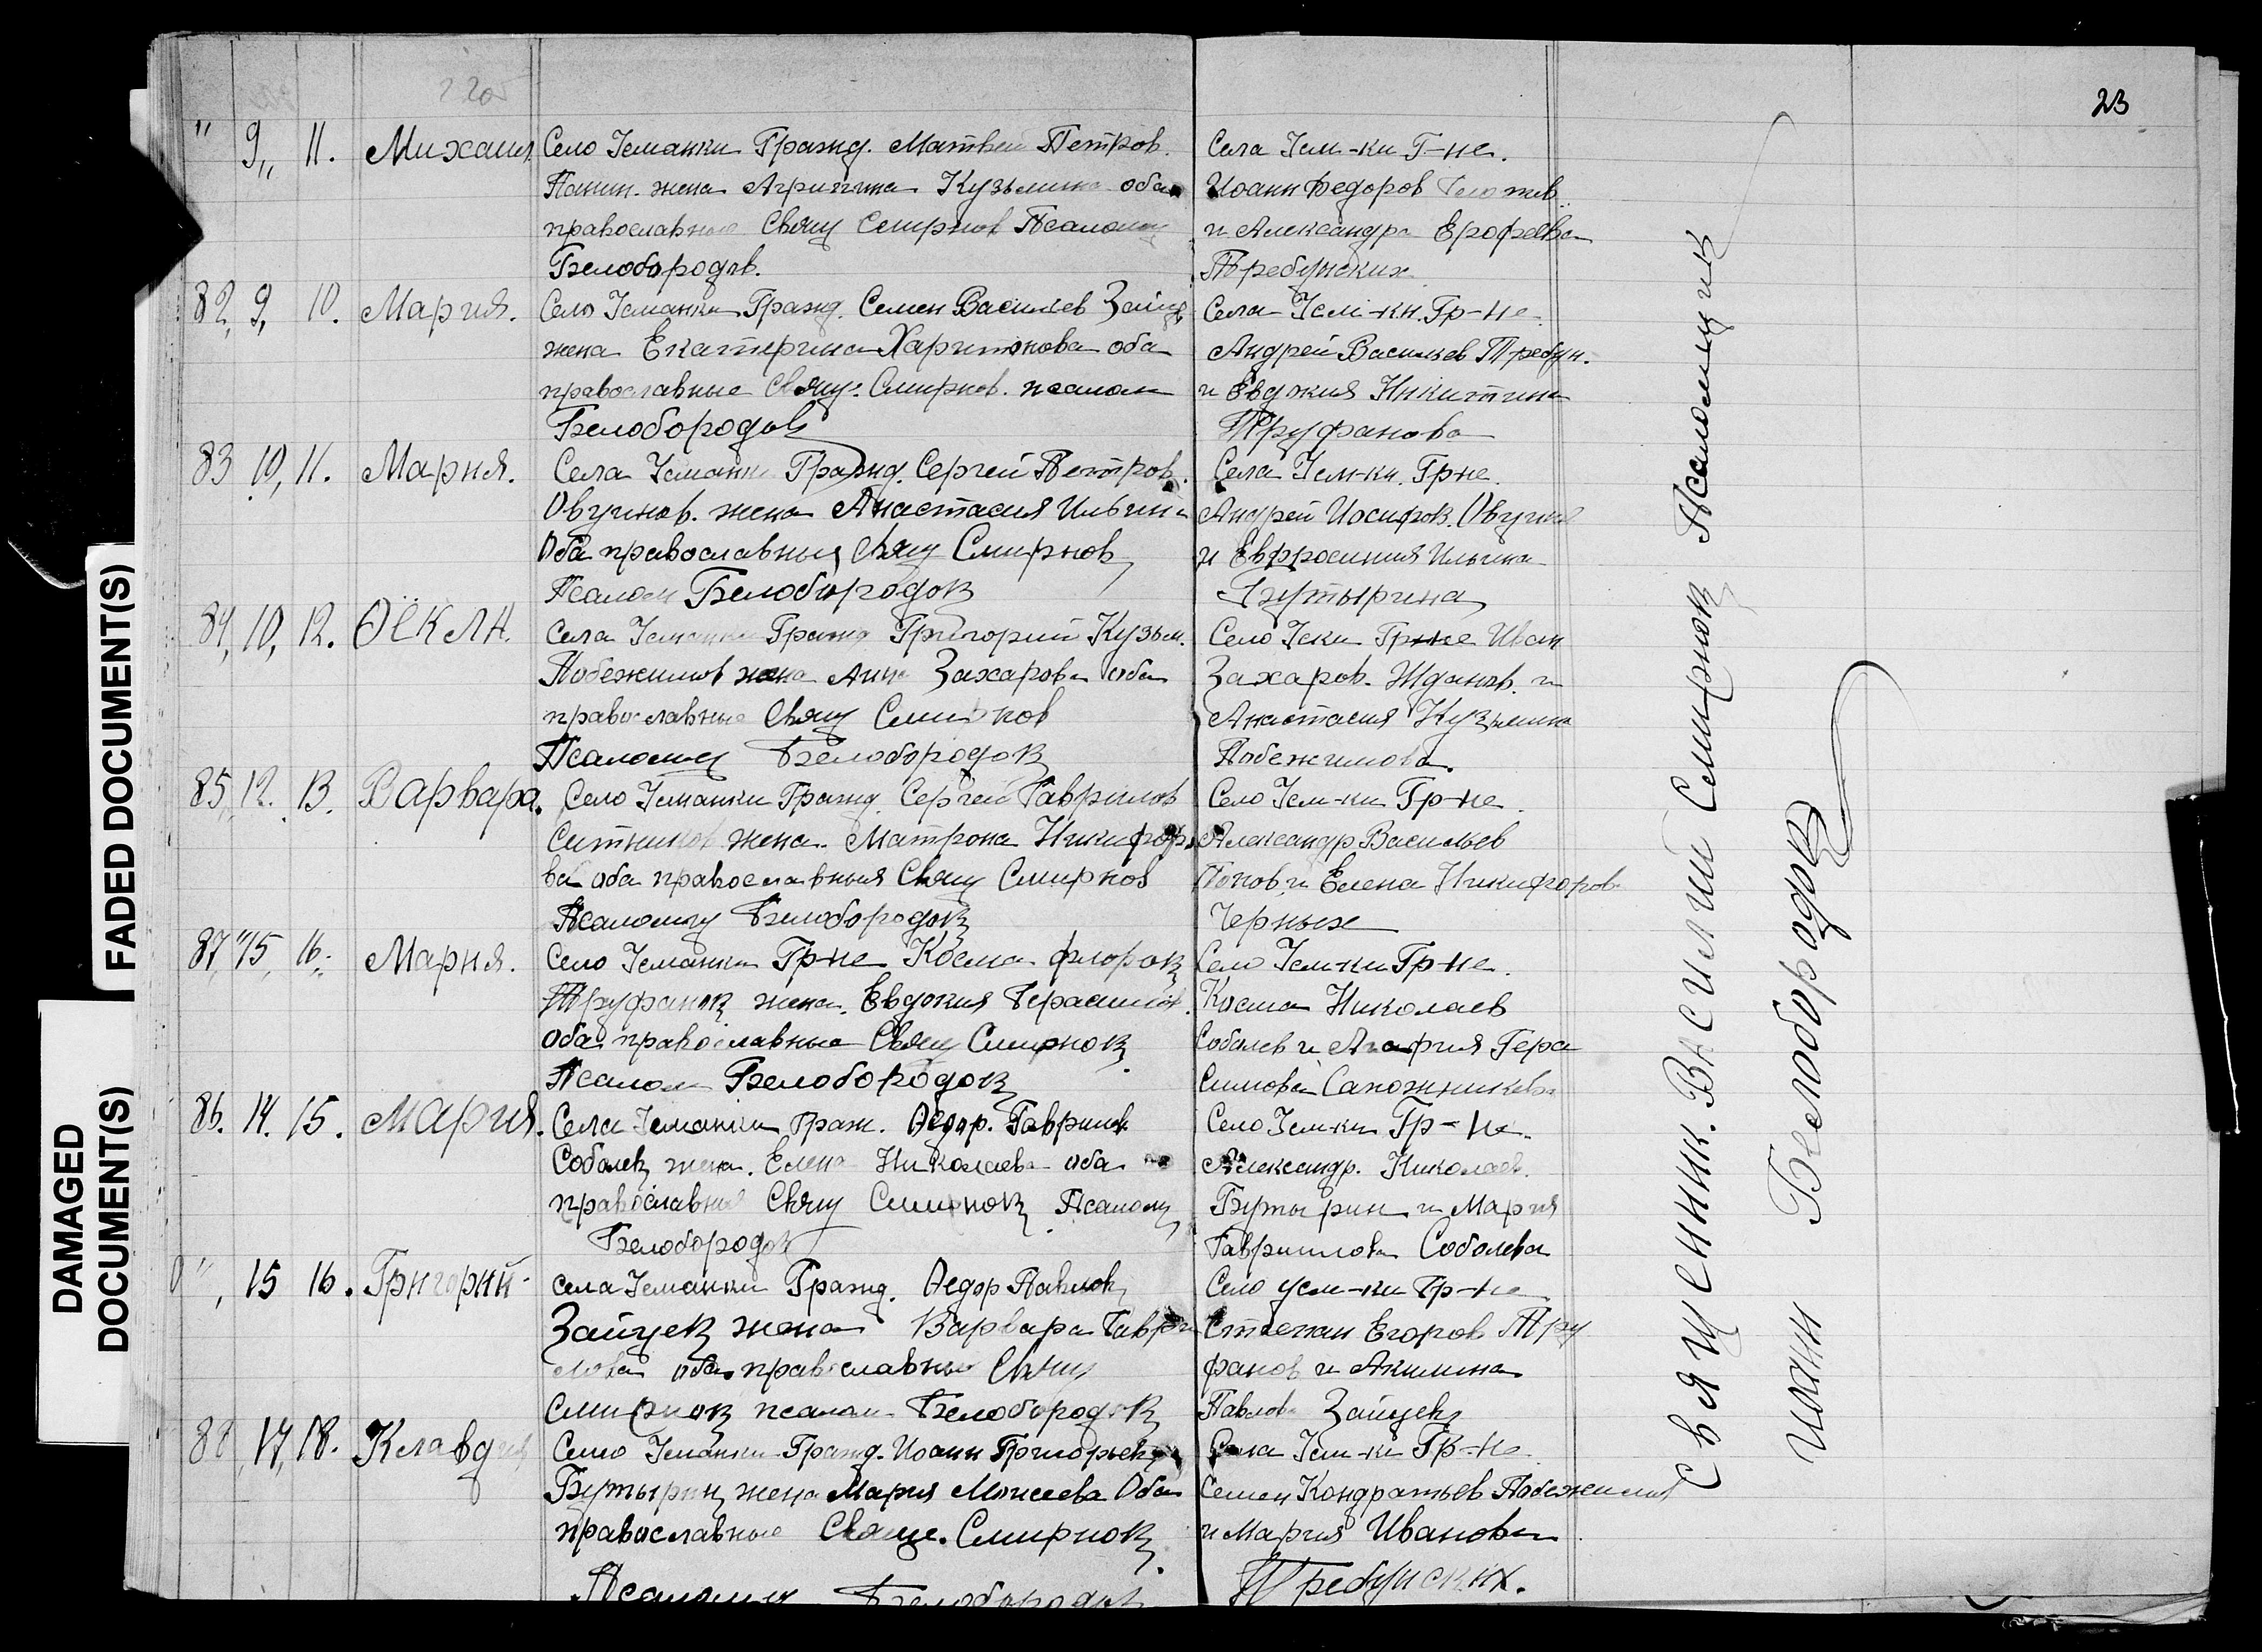 23
" 9,, 11. Михаил Село Усманки Гражд. Матвей Петров. Села Усм-ки Г-не.
Панин. жена Агрипина Кузьмина оба Иоанн Федоров
православные Свящ Смирнов Псаломщ и Александра Ерофеева
Белобородов. Требунских
82, 9, 10. Мария. Село Усманки Гражд. Семен Васильев Зайцев Села Усм-ки. Гр-не.
жена Екатерина Харитонова оба Андрей Васильев Требун.
православные Свящ. Смирнов. псалом и Евдокия Никитина
Белобородов Труфанова
83 10, 11. Мария. Села Усманки Гражд. Сергей Петров. Села Усм-ки. Гр-не.
Овчинов. жена Анастасия Ильина Андрей Иосифов. Овчин
Оба православныя Свящ Смирнов и Евфросиния Ильина
Псалом Белобородов Бутырина
84, 10, 12. Ѳекла. Села Усманки Гражд Григорий Кузьм. Село Уски Гр-не Иван
Побежимов жена Анна Захарова оба Захаров. Жданов. и
православные Свящ Смирнов Анастасия Кузмина
Псаломщ Белобородов Побежимова.
85, 12. 13. Варвара. Село Усманки Гражд. Сергей Гаврилов Село Усм-ки Гр-не.
Ситников жена. Матрона Никифоро Александр Васильев
ва оба православныя Свящ Смирнов Попов и Елена Никифоров
Псаломщ Белобородов Черных
87," 15, 16. Мария. Село Усманки Гр-не Косма Флоров Село Усм-ки Гр-не.
Труфанов жена. Евдокия Герасимов. Косма Николаев
оба православные Свящ Смирнов. Соболев и Агафия Гера
Псалом Белобородов симова Сапожникова
86. 14. 15. Мария. Села Усманки Граж. Ѳедор. Гаврилов Село Усм-ки Гр-не.
Соболев жена. Елена Николаева оба Александр. Николаев.
православныя Свящ Смирнов Псаломщ Бутырин и Мария
Белобородов Гаврилова Соболева
", 15 16. Григорий села Усманки Гражд. Ѳедор Павлов Село Усм-ки Гр-не
Зайцев жена Варвара Гаври Степан Егоров Тру
лова оба православные Свящ фанов и Акилина
Смирнов псалом Белобородов Павлова Зайцев
88, 17, 18. Клавдия Село Усманки Гражд. Иоанн Григорьев Села Усм-ки Гр-не
Бутырин жена Мария Моисеева Оба Семен Кондратьев Побежимов
православные Свяще. Смирнов. и Мария Иванова
Псаломщ Белобородов Требунских.
Священник. Василий Смирнов Псаломщик
Иоанн Белобородов
FADED DOCUMENT(S)
DAMAGED
DOCUMENT(S)